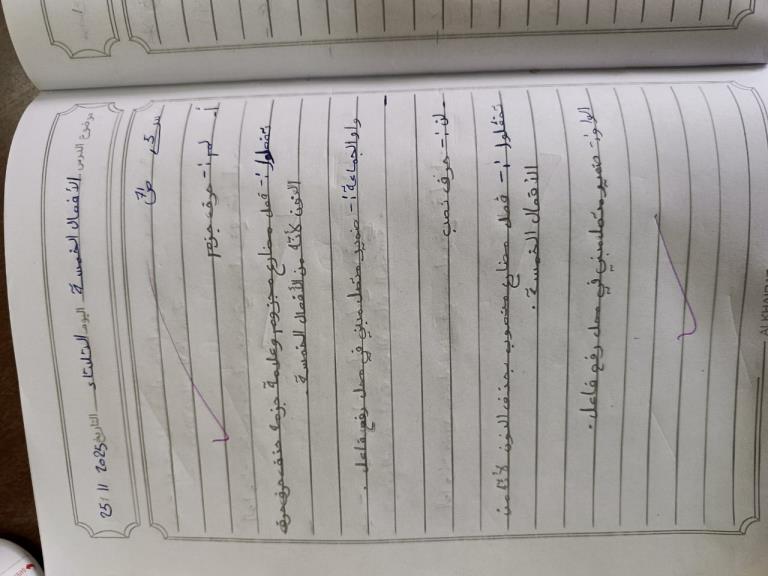 موضوع الدرس الأفعال الخمسة اليوم الثلاثاء التاريخ 25/11/2025
لم :- حرف جزم
تفعلوا :- فعل مضارع مجزوم وعلامة جزمه حذف حرف
النون لأنه من الأفعال الخمسة.
واو الجماعة :- ضمير متصل مبني في محل رفع فاعل.
لن :- حرف نصب
تفعلوا :- فعل مضارع منصوب بحذف النون لأنه من
الأفعال الخمسة.
الواو :- ضمير متصل مبني في محل رفع فاعل.